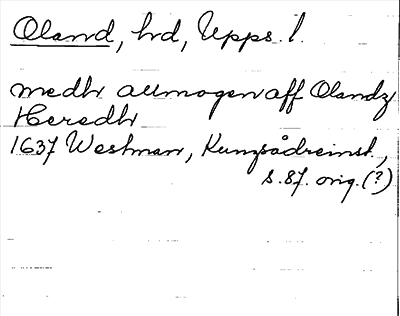 Oland, hrd, Upps. l.
medh allmogen aff Olandz
Heredh
1637 Westman, Kungsådreinst.,
s. 87. orig. (?)